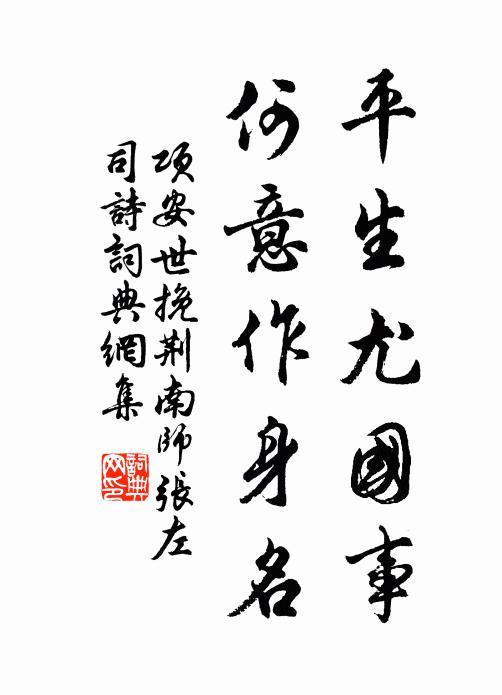 平生尤國事
何意作身名
項安世挽荆南師張左
司詩詞典網集
詞典
网印